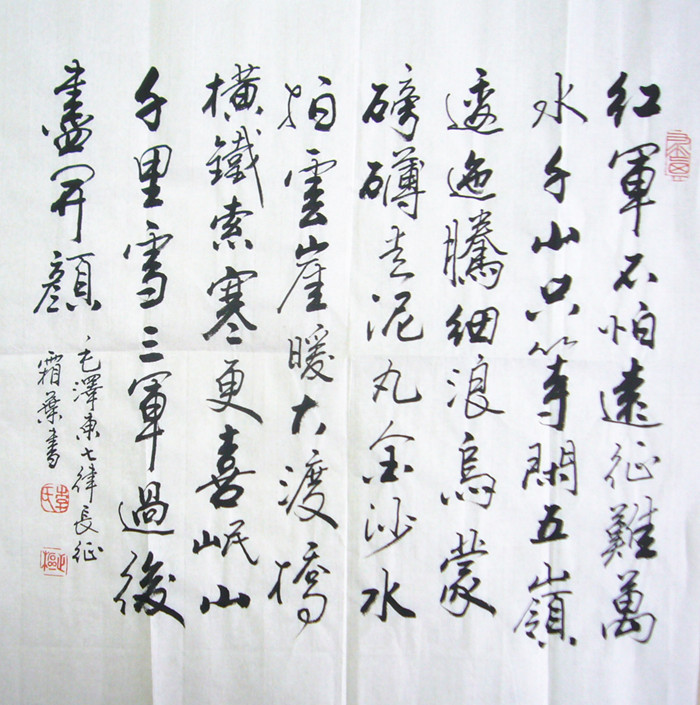 紅軍不怕遠征難萬
水千山只等閑五嶺
逶迤騰細浪烏蒙
磅礴走泥丸金沙水
拍雲崖暖大渡橋
橫鐵索寒更喜岷山
千里雪三軍過後
盡開顏
毛澤東七律長征
霜葉書
李氏